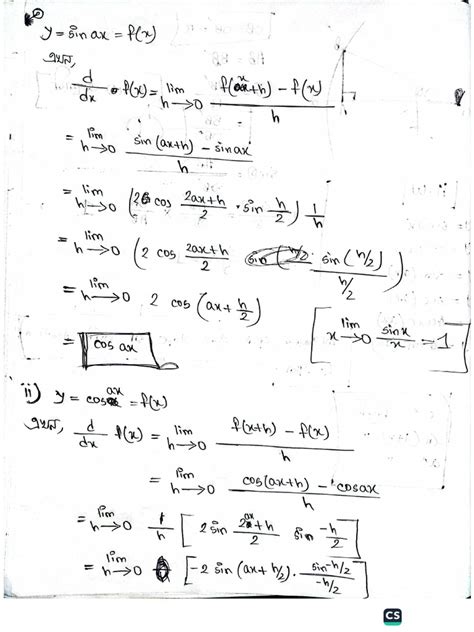 i) y = sin ax = f(x)
এখন,
d/dx f(x) = lim h→0 (f(x+h) - f(x))/h
= lim h→0 (sin (ax+h) - sin ax)/h
= lim h→0 (2 cos (2ax+h)/2 · sin h/2) 1/h
= lim h→0 (2 cos (2ax+h)/2 · sin (h/2)/(h/2))
= lim h→0 2 cos (ax + h/2)
[lim x→0 sin x/x = 1]
= cos ax
ii) y = cos ax = f(x)
এখন, d/dx f(x) = lim h→0 (f(x+h) - f(x))/h
= lim h→0 (cos(ax+h) - cos ax)/h
= lim h→0 1/h [2 sin (2ax+h)/2 sin (-h)/2]
= lim h→0 [-2 sin (ax + h/2) · (sin -h/2)/(-h/2)]
CS